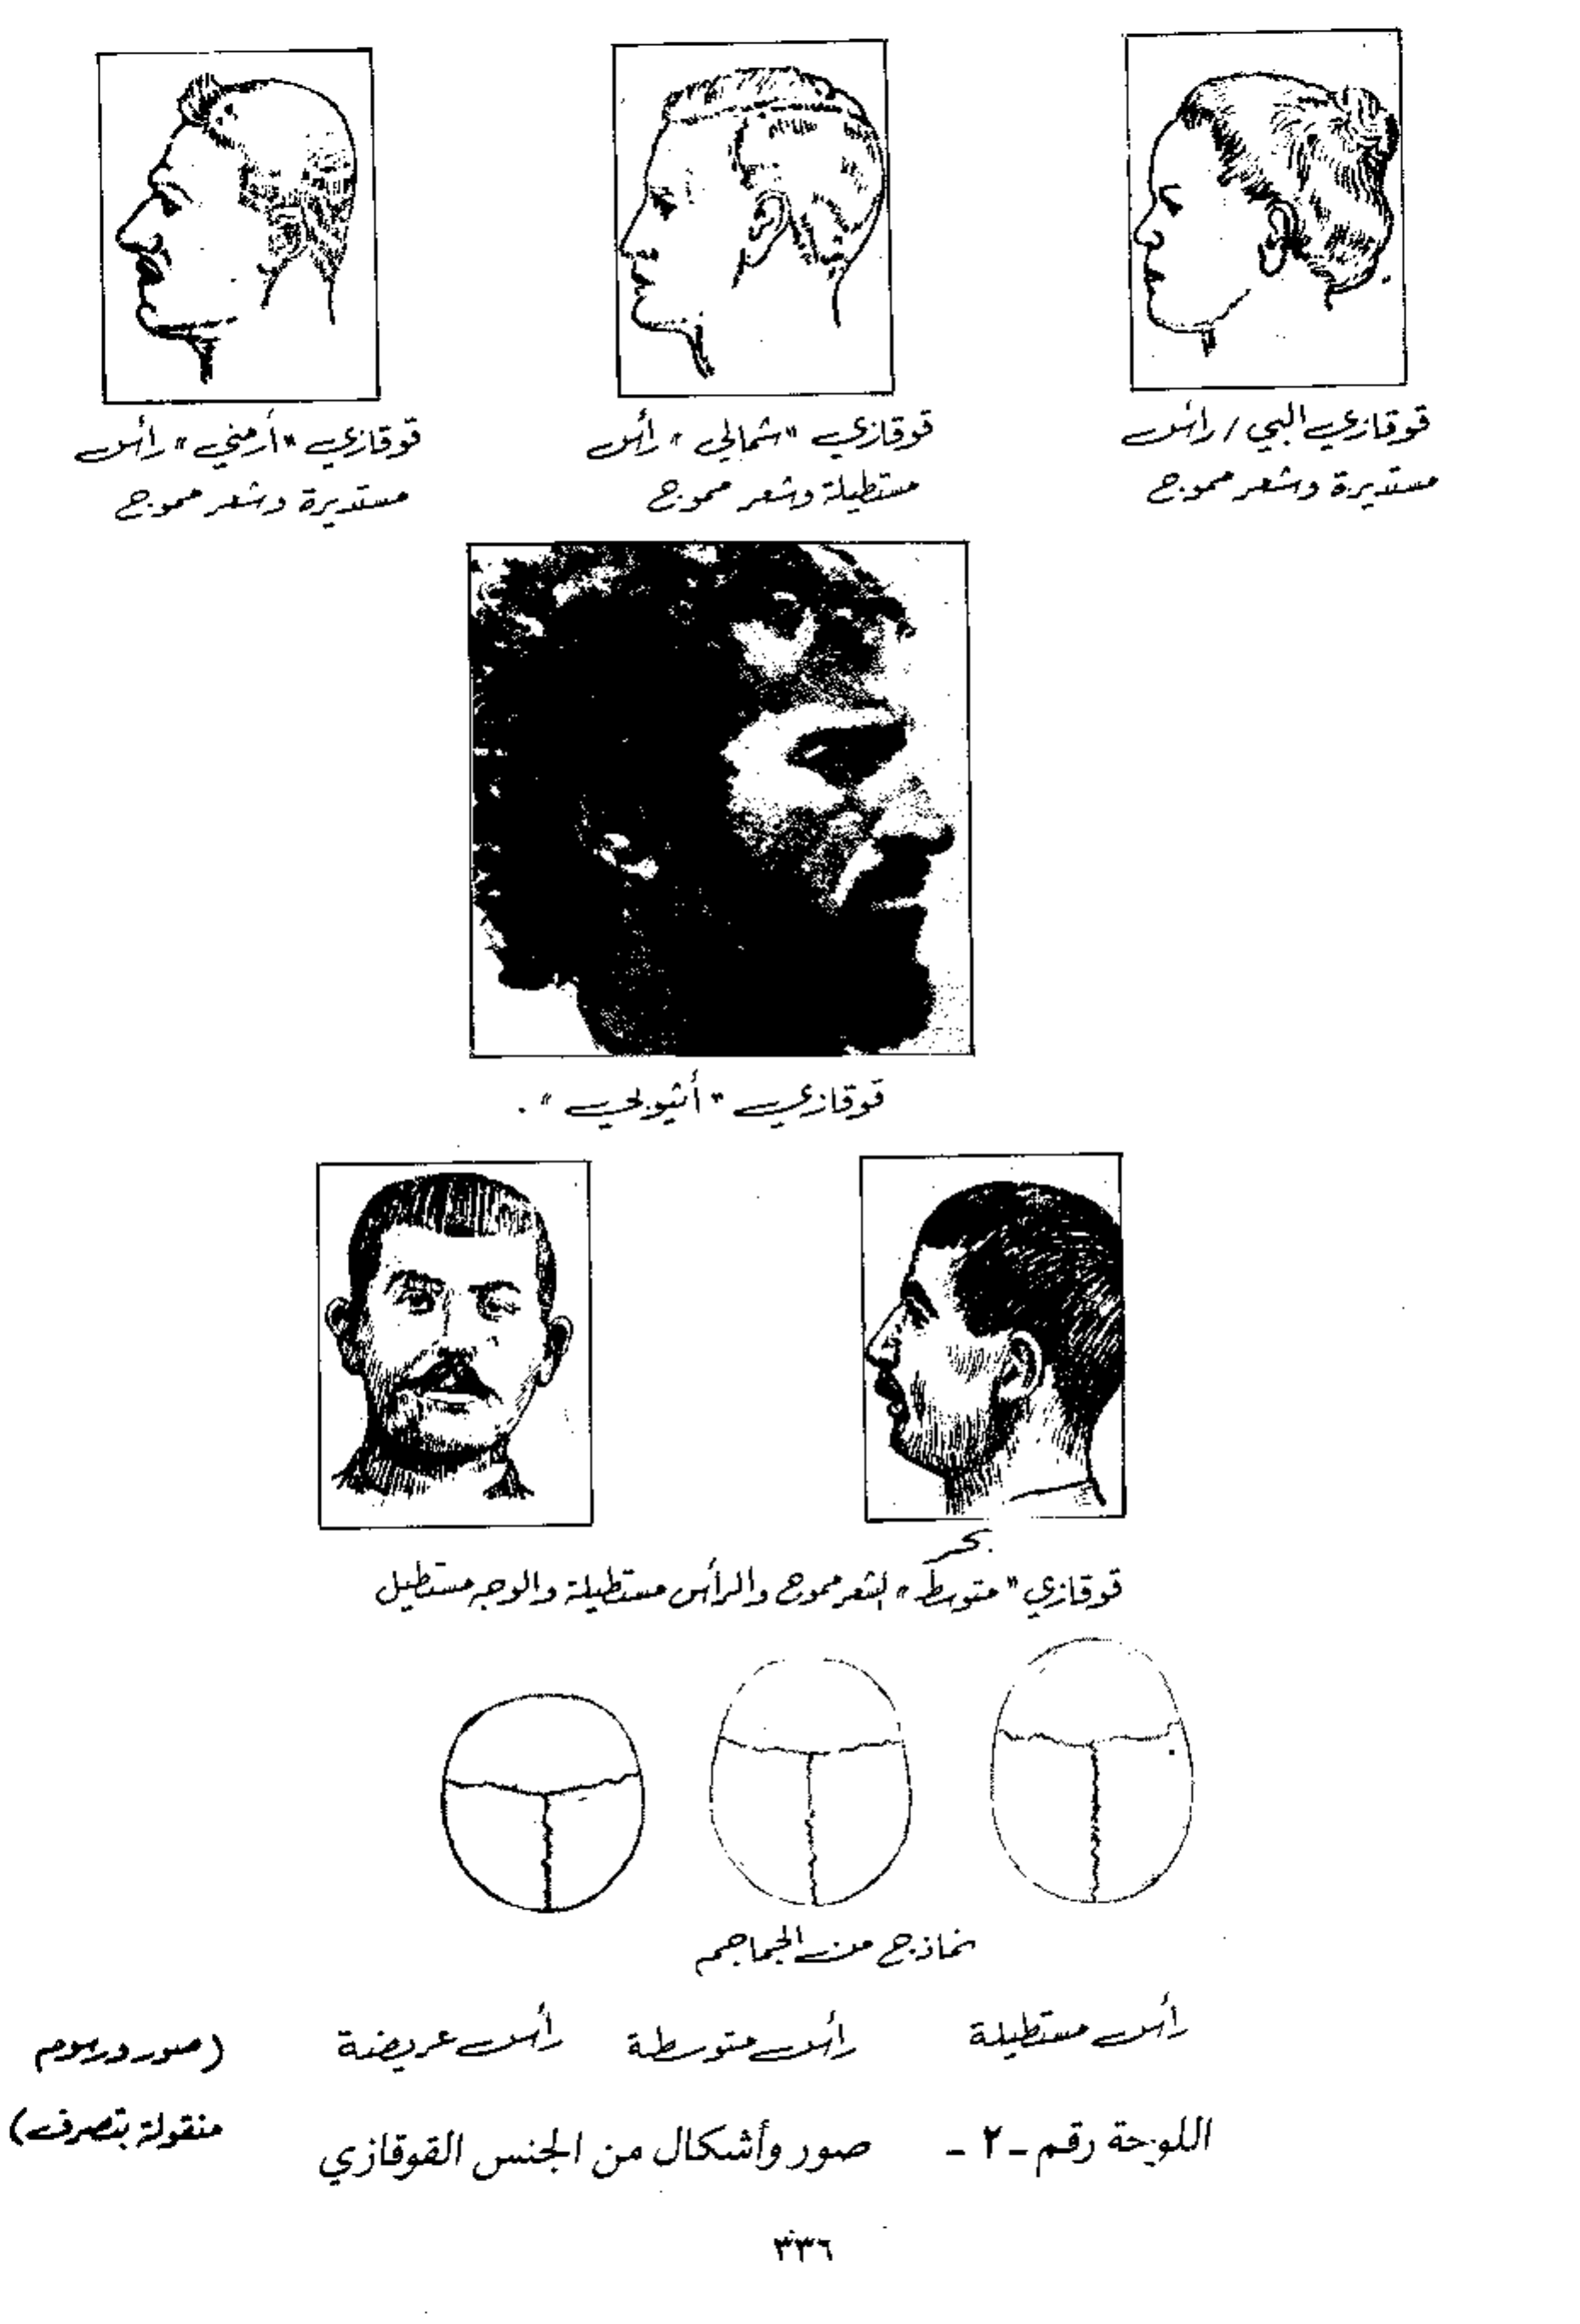 قوقازي البي / رأس
مستديرة وشعر مموج
قوقازي "شمالي" رأس
مستطيلة وشعر مموج
قوقازي "أرمني" رأس
مستديرة وشعر مموج
قوقازي "أثيوبي".
بحر
قوقازي "متوسط" الشعر مموج والرأس مستطيلة والوجه مستطيل
نماذج من الجماجم
رأس مستطيلة
رأس متوسطة
رأس عريضة
(صور ورسوم
منقولة بتصرف)
اللوحة رقم - ٢ - صور وأشكال من الجنس القوقازي
٣٣٦